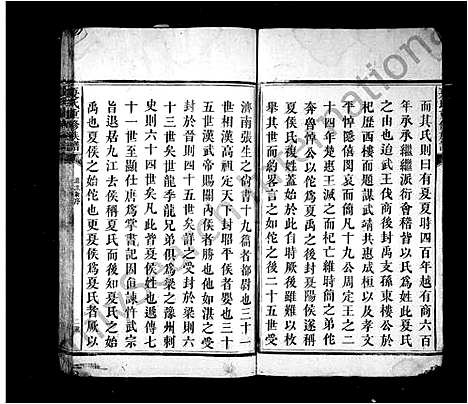 而其氏則曰有夏夏時四百年越有商六百
年承承繼繼派衍會稽皆以氏爲姓此夏氏
之由也迨武王伐商後封禹支孫東樓公於
杞歷西樓而題謀武靖共惠成桓以及孝文
平悼隱閔哀而簡凡十九公周定王之二
十四年楚惠王滅之而杞亡維時簡之弟佗
奔魯悼公以佗爲夏禹之後封夏陽侯遂稱
夏侯氏複姓蓋始於此自時厥後雖難以枚
舉世而約畧言之如佗之後二十五世受
濟南張生之尚書十九篇者都尉也三十一
世相漢高祖定天下封耶平侯者嬰也三十
五世漢武帝賜關內侯者勝也他如湛之受
封於晉則四十五世矣詳之受封於梁則六
十一世矣世龍季龍兄弟俱爲梁之豫州刺
史則六十四世矣凡此皆複侯姓也遞傳七
十一世至顯仕唐爲掌書記因直諫忤武宗
旨退居九江去侯稱夏氏而後知夏氏之始
禹也夏侯之始佗也更夏侯爲夏氏者厥以